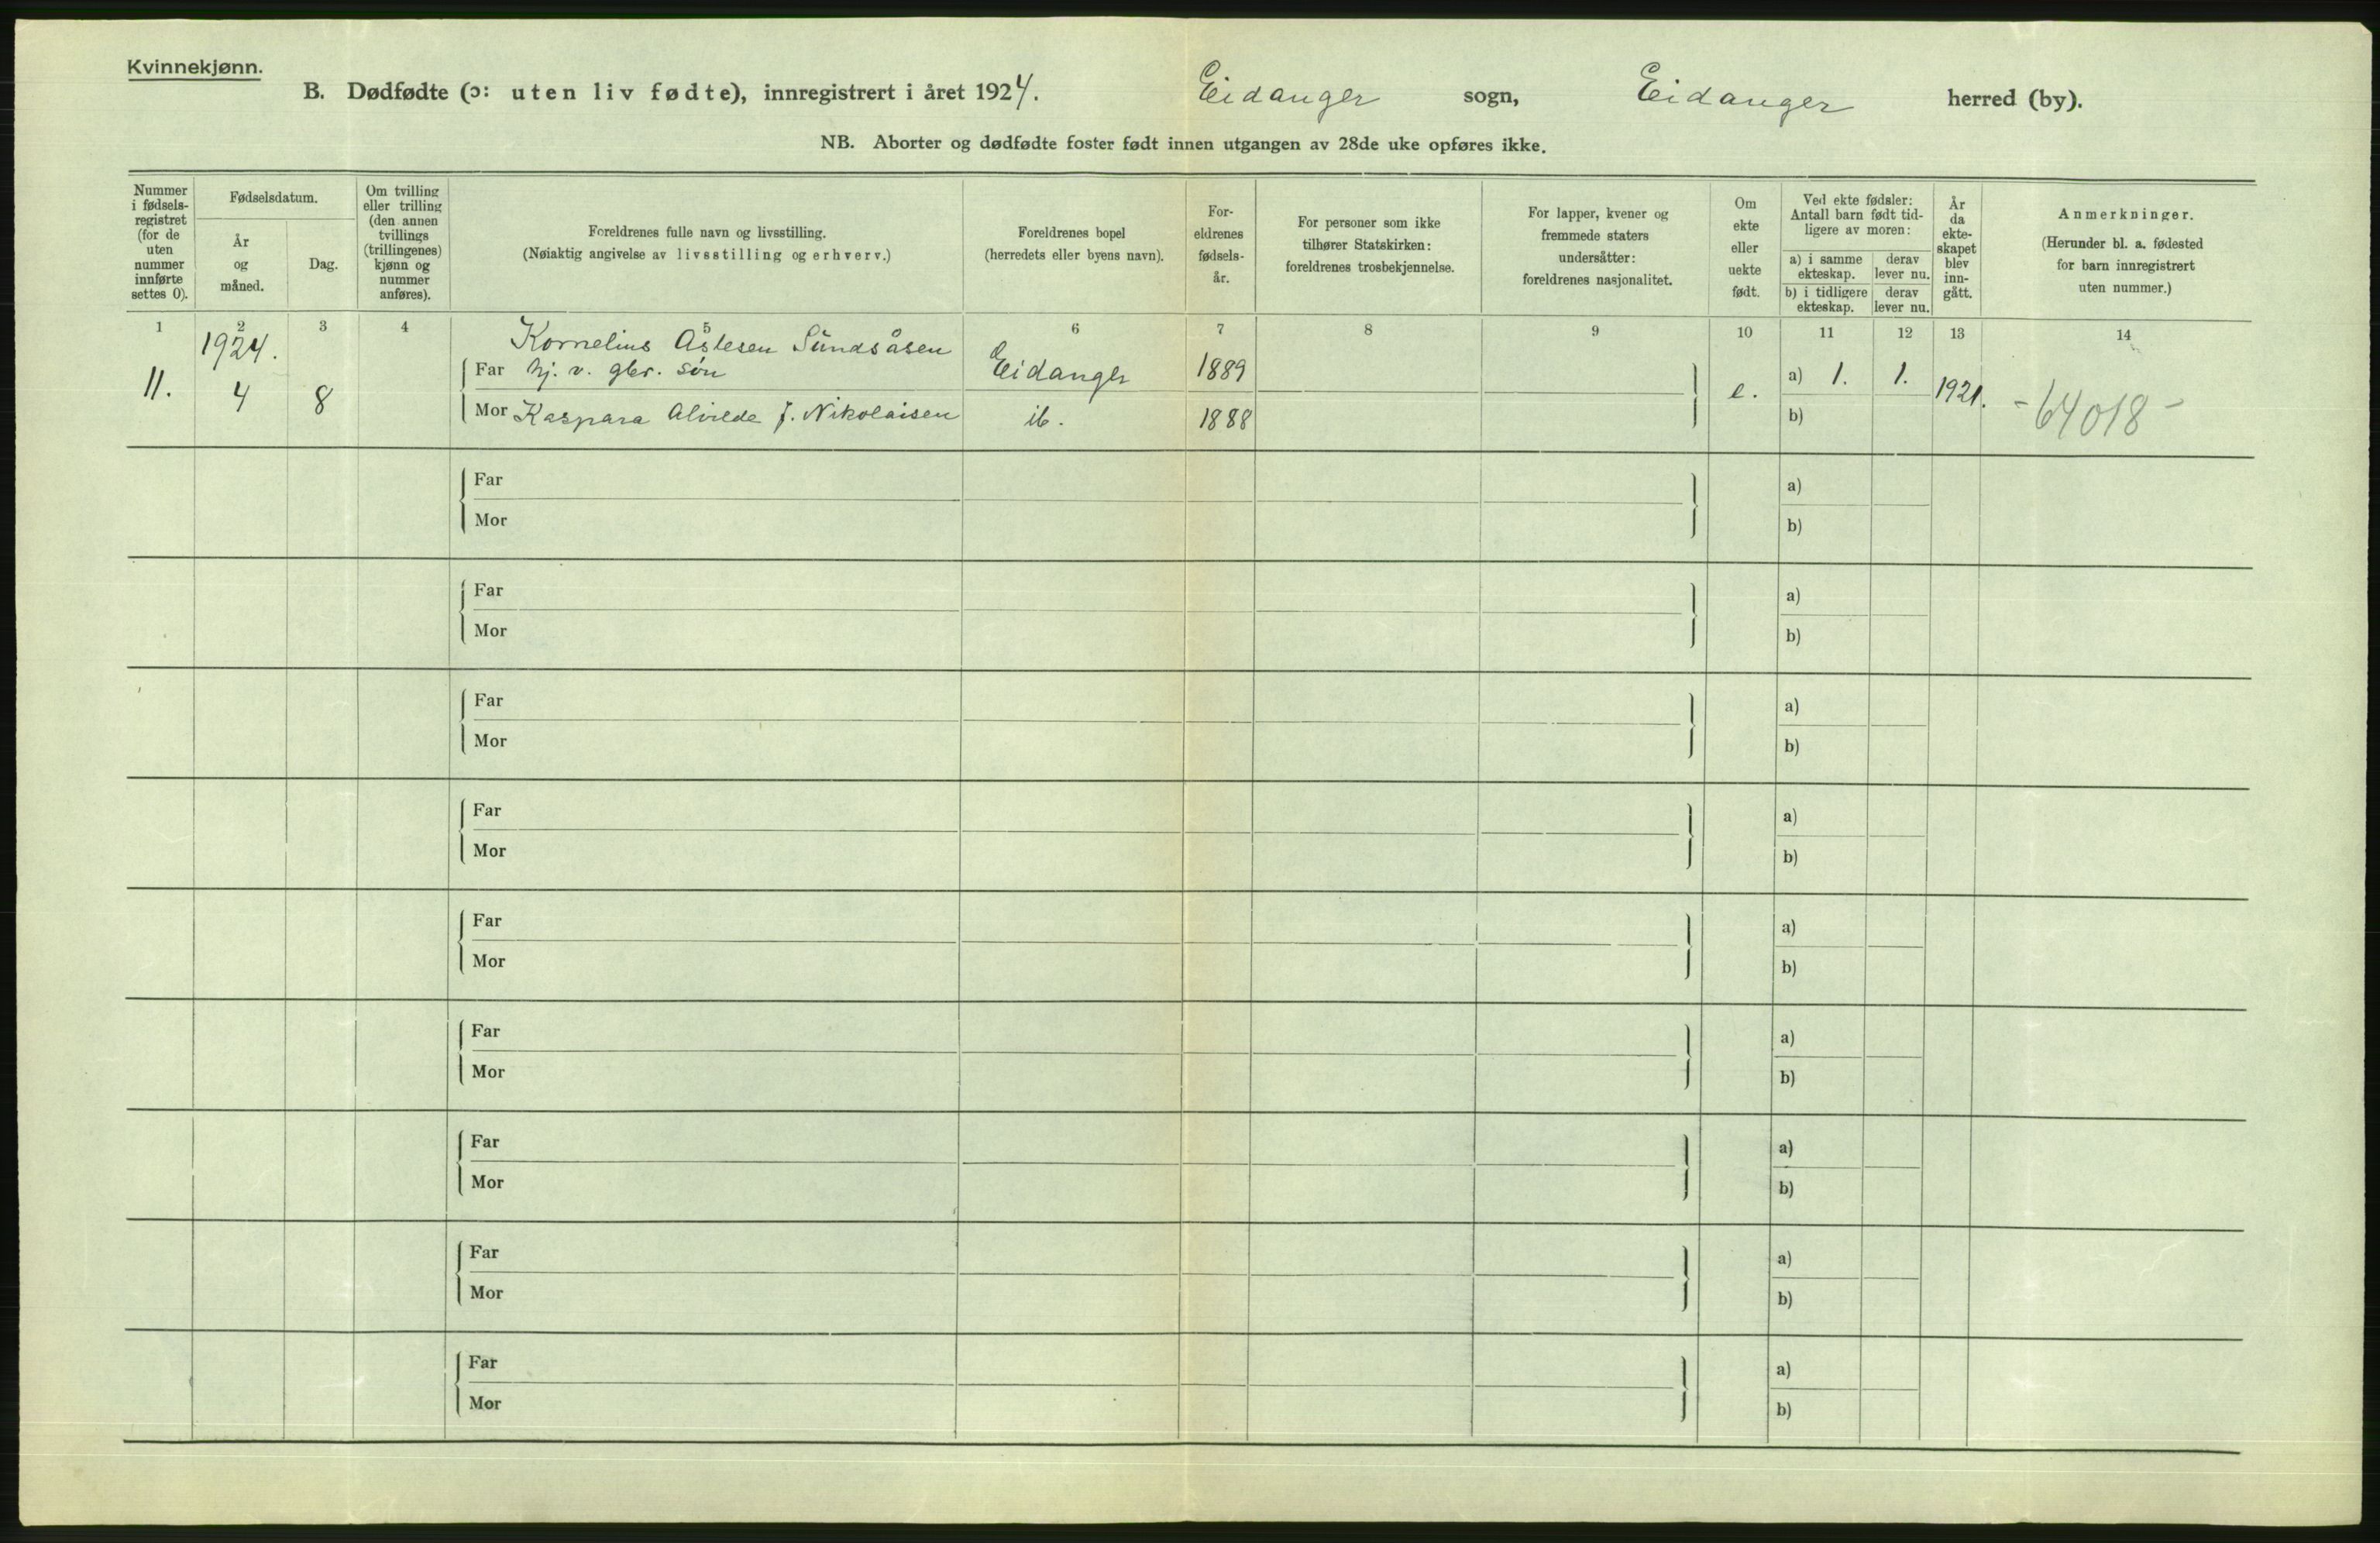 Kvinnekjønn.
B. Dødfødte (ɔ: uten liv fødte), innregistrert i året 1924. Eidanger sogn, Eidanger herred (by).
NB. Aborter og dødfødte foster født innen utgangen av 28de uke opføres ikke.
Nummer i fødsels-registret (for de uten nummer innførte settes 0).
Fødselsdatum.
År og måned.
Dag.
Om tvilling eller trilling (den annen tvillings (trillingenes) kjønn og nummer anføres).
Foreldrenes fulle navn og livsstilling.
(Nøiaktig angivelse av livsstilling og erhverv.)
Foreldrenes bopel
(herredets eller byens navn).
For-eldrenes fødsels-år.
For personer som ikke tilhører Statskirken: foreldrenes trosbekjennelse.
For lapper, kvener og fremmede staters undersåtter: foreldrenes nasjonalitet.
Om ekte eller uekte født.
Ved ekte fødsler: Antall barn født tid-ligere av moren:
a) i samme ekteskap.
derav lever nu.
b) i tidligere ekteskap.
derav lever nu.
År da ekte-skapet blev inn-gått.
Anmerkninger.
(Herunder bl. a. fødested for barn innregistrert uten nummer.)
1 2 3 4 5 6 7 8 9 10 11 12 13 14
1924.
Kornelius Aslesen Sundsåsen
11. 4 8
Far hj. v. gbr. søn Eidanger 1889
e. a) 1. 1. 1921. -64018-
Mor Kaspara Alvilde J. Nikolaisen ib. 1888
b)
Far a)
Mor b)
Far a)
Mor b)
Far a)
Mor b)
Far a)
Mor b)
Far a)
Mor b)
Far a)
Mor b)
Far a)
Mor b)
Far a)
Mor b)
Far a)
Mor b)